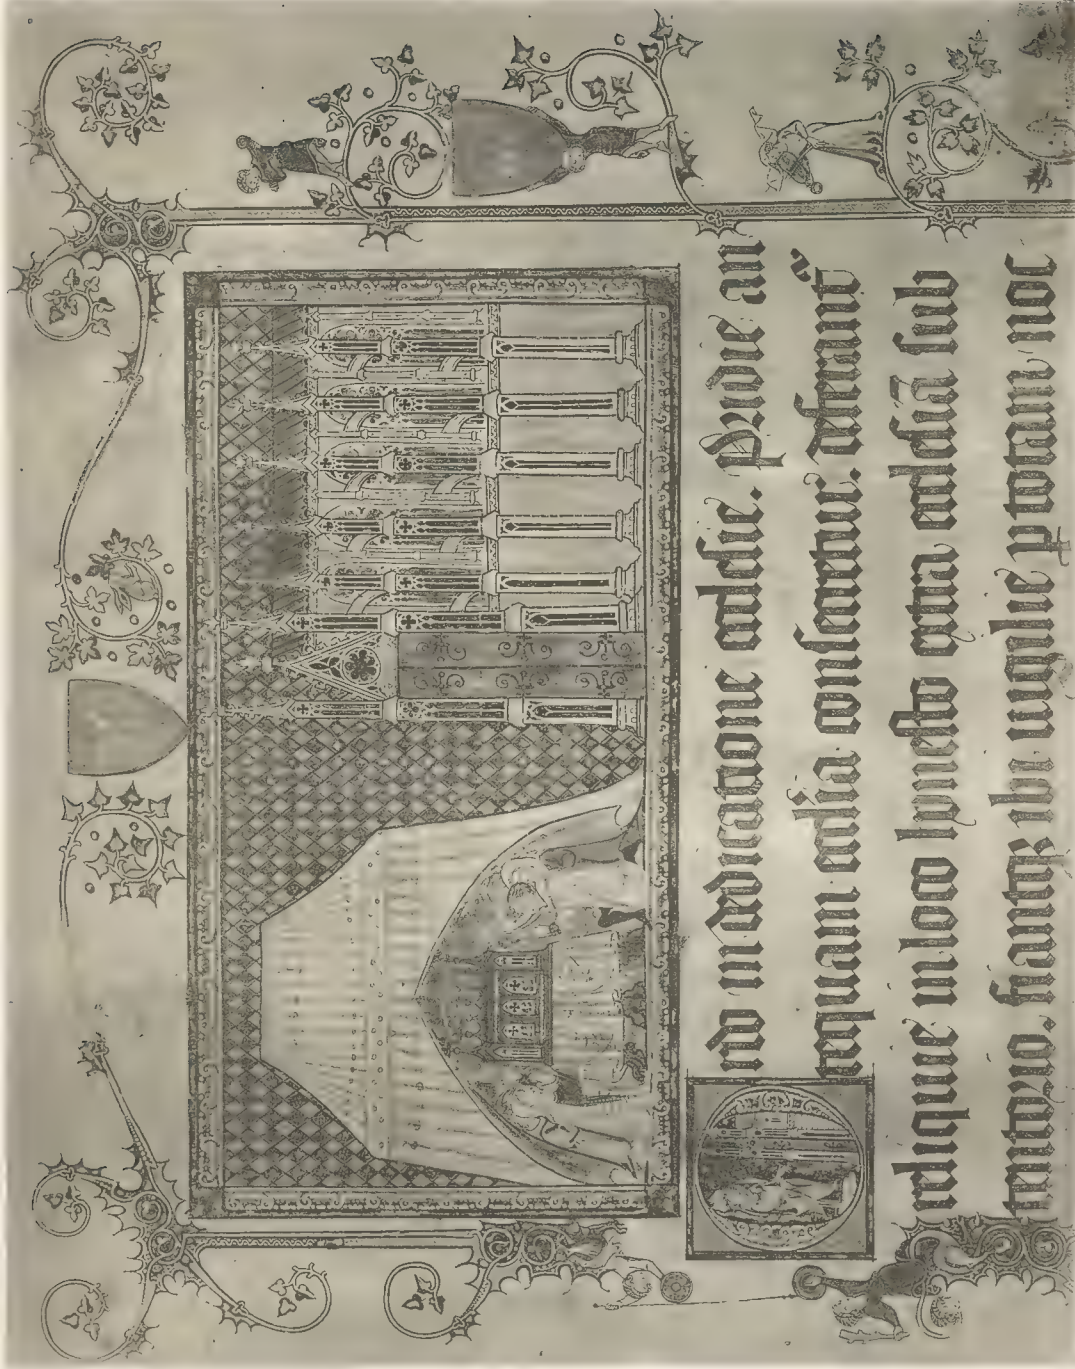 Ordo in dedicatione ecclesie. Pridie an
tequam ecclesia consecretur. deferant᷑
reliquie in loco honesto extra ecclesiã sub
tentorio. fiantqꝫ ibi uigilie ꝑ totam noc